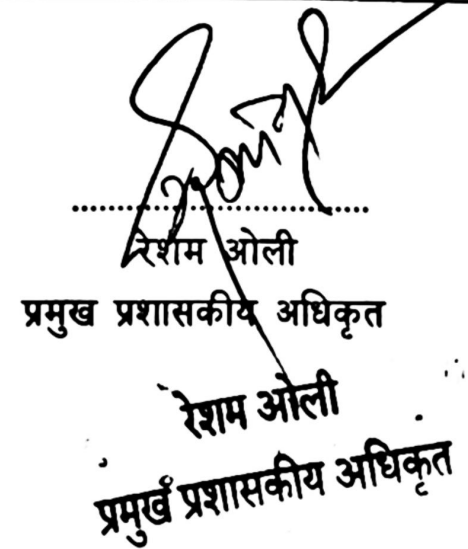 रेशम ओली
प्रमुख प्रशासकीय अधिकृत
रेशम ओली
प्रमुख प्रशासकीय अधिकृत